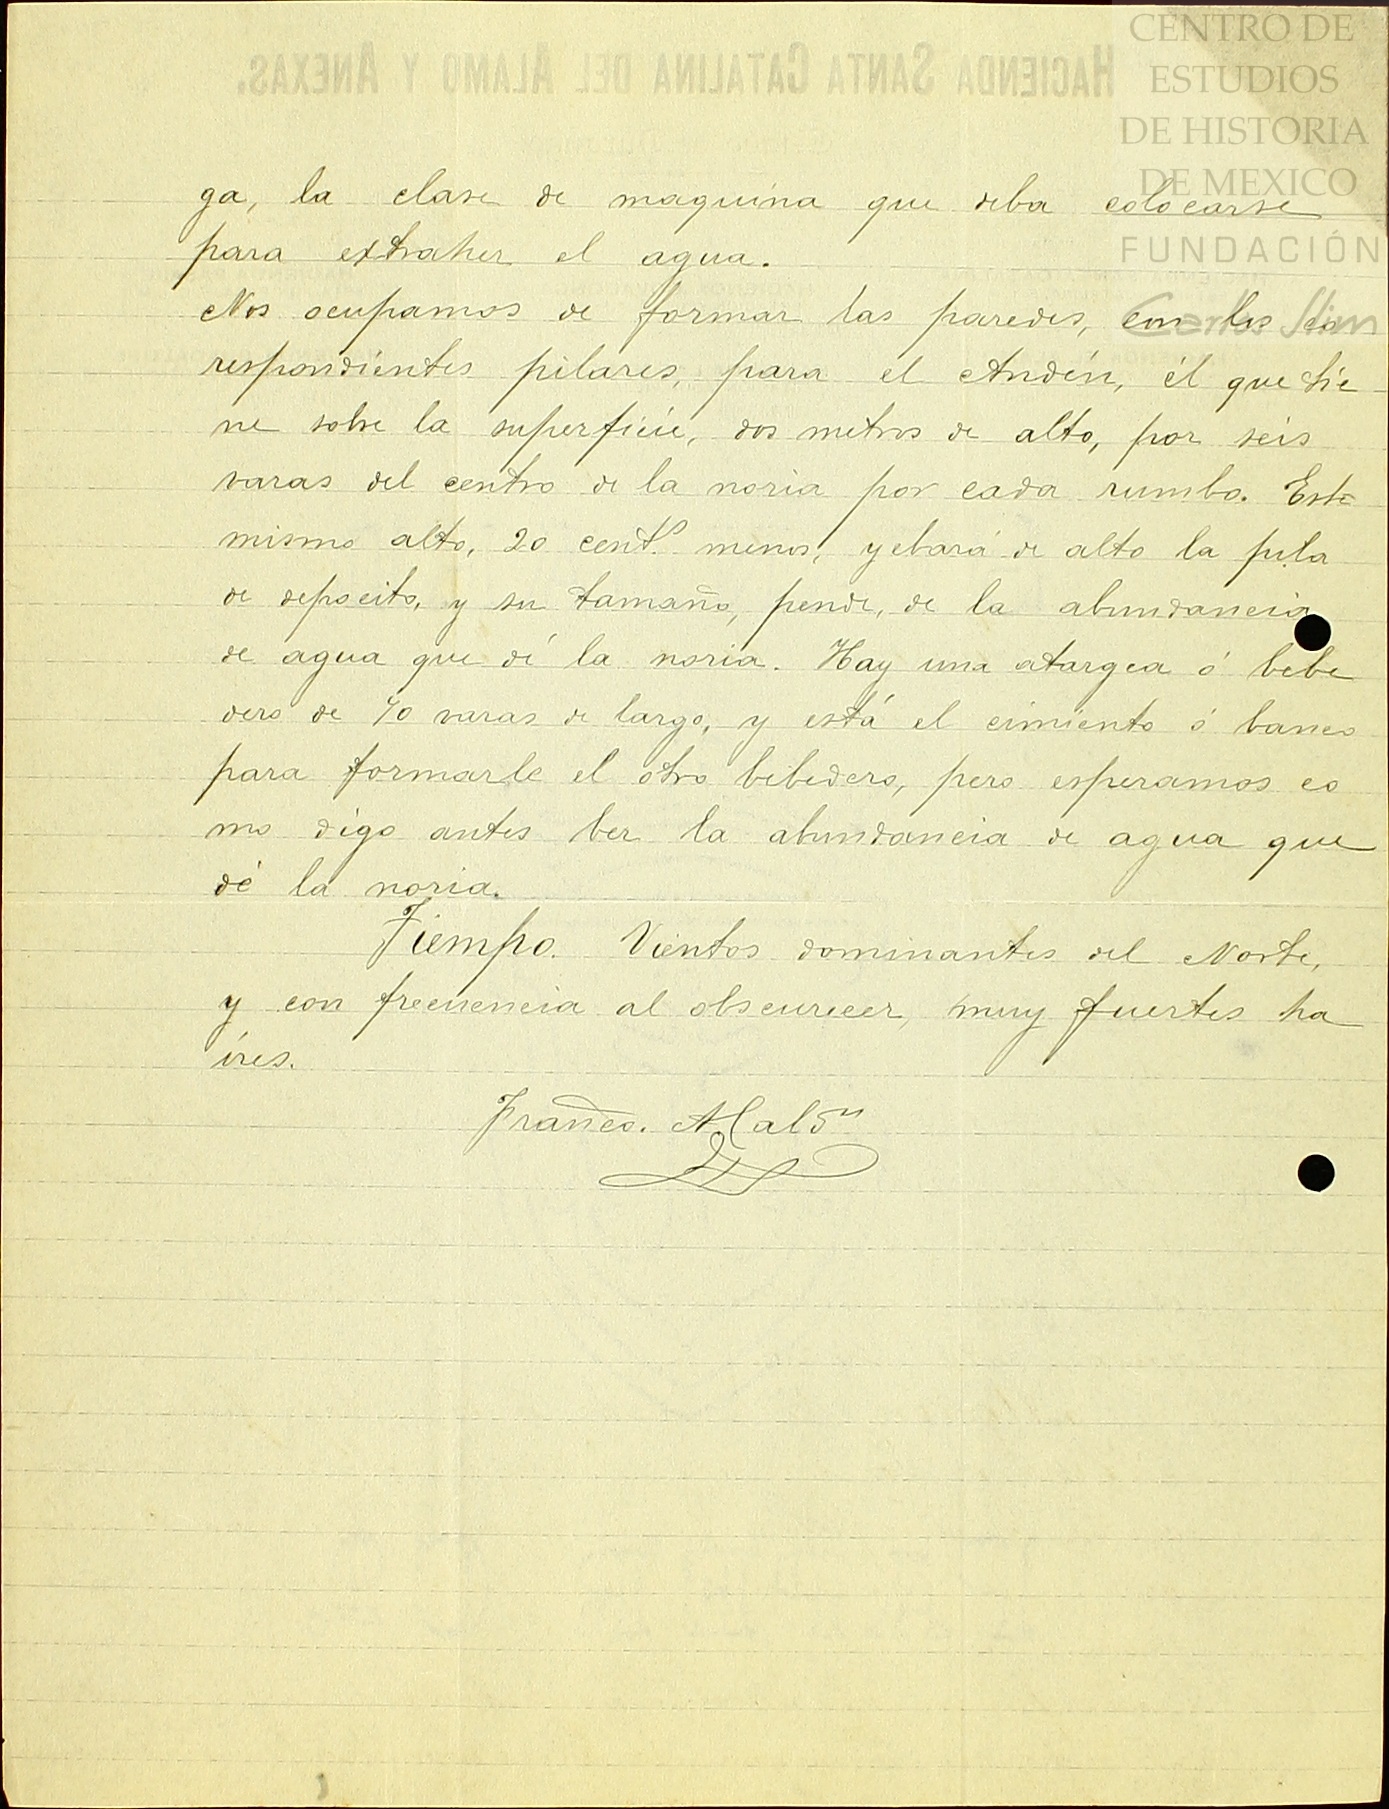 CENTRO DE
ESTUDIOS
DE HISTORIA
DE MEXICO
FUNDACIÓN
Carlos Slim
HACIENDA SANTA CATALINA DEL ALAMO Y ANEXAS.
ga, la clase de maquina que deba colocarse
para extraher el agua.
Nos ocupamos de formar las paredes, con los co
respondientes pilares, para el Andén, él que tie
ne sobre la superficie, dos metros de alto, por seis
varas del centro de la noria por cada rumbo. Este
mismo alto, 20 cents. menos, yebará de alto la pila
de deposito, y su tamaño, pende, de la abundancia
de agua que dé la noria. Hay una atargea ó bebe
dero de 40 varas de largo, y está el cimiento ó banco
para formarle el otro bebedero, pero esperamos co
mo digo antes ber la abundancia de agua que
dé la noria.
Tiempo. Vientos dominantes del Norte,
y con frecuencia al obscurecer, muy fuertes ha
ires.
Franco.